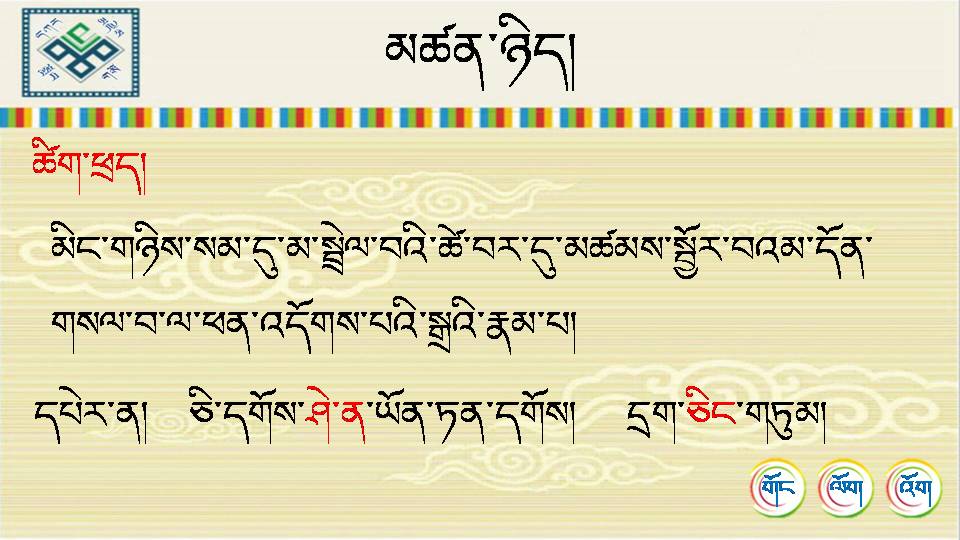 མཚན་ཉིད།
ཚིག་ཕྲད།
མིང་གཉིས་སམ་དུ་མ་སྦྲེལ་བའི་ཚེ་བར་དུ་མཚམས་སྦྱོར་བའམ་དོན་
གསལ་བ་ལ་ཕན་འདོགས་པའི་སྒྲའི་རྣམ་པ།
དཔེར་ན། ཅི་དགོས་ཤེ་ན་ཡོན་ཏན་དགོས། དྲག་ཅིང་གཏུམ།
གོང འོག